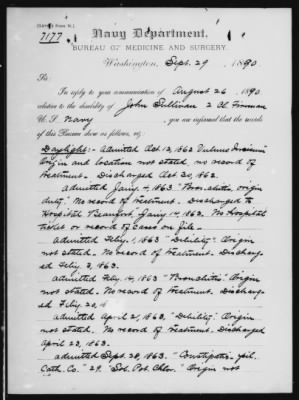 7177
Navy Department,
BUREAU OF MEDICINE AND SURGERY.
Washington, Sept. 29, 1890
In reply to your communication of August 26, 1890
relative to the disability of John Sullivan 2 Cl. Fireman
U.S. Navy, you are informed that the records
of this Bureau show as follows, viz:
Daylight:- Admitted Oct. 12, 1862 Vulnus Incisum
Origin and location not stated, no record of
treatment. Discharged Oct. 20, 1862.
admitted Jany. 4, 1863 "Bronchitis, origin
duty." No record of treatment. Discharged to
Hospital Beaufort, Jany. 14, 1863. No Hospital
ticket or record of case on file.
admitted Feby. 1, 1863 "Debility." Origin
not stated. No record of treatment. Discharg-
ed Feby. 3, 1863.
admitted Feby. 14, 1863 "Bronchitis" Origin
not stated. No record of treatment. Discharg
ed Feby. 20,
admitted April 21, 1863, "Debility." Origin
not stated. No record of treatment. Discharged
April 23, 1863.
admitted Sept. 28, 1863. "Constipatio- pil.
Cath. Co." 29. "Sol. Pot. Chlor." Origin not